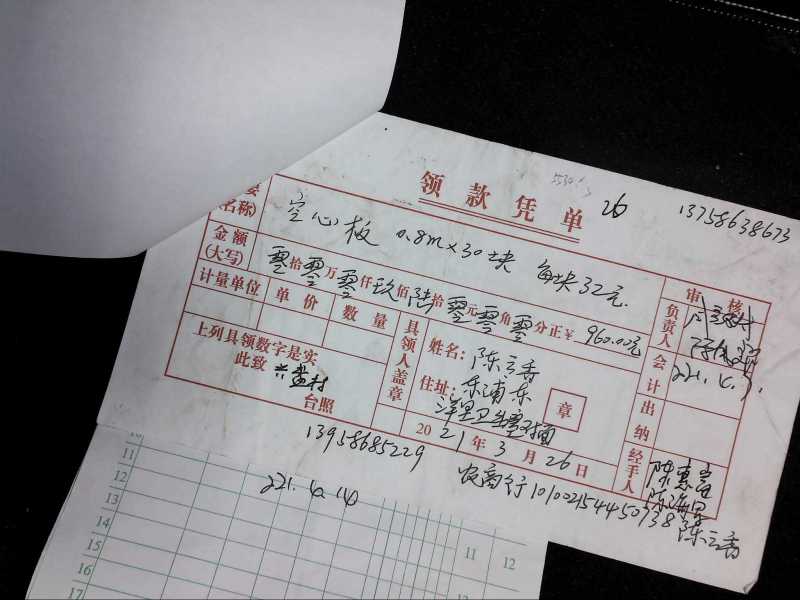 领款凭单
26
13758638673
名称)
空心板 0.8m×30块 每块32元.
金额
(大写)
零拾零万零仟玖佰陆拾零元零角零分正¥ 960.00元
计量单位 单价 数量
上列具领数字是实
此致
台照
具领人盖章
姓名: 陈云香
住址: 东浦东
洋里卫生室对面
章
2021年3月26日
审核
负责人
会计
221.4.7.
出纳
经手人
13958685229
农商行101002154450738
陈云香
221.4.14
11
12
13
14
15
16
17
11 12